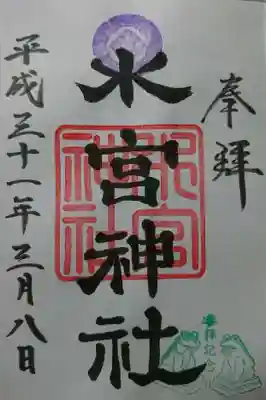 奉拝
水宮神社
水宮神社
参拝記念
平成三十一年三月八日